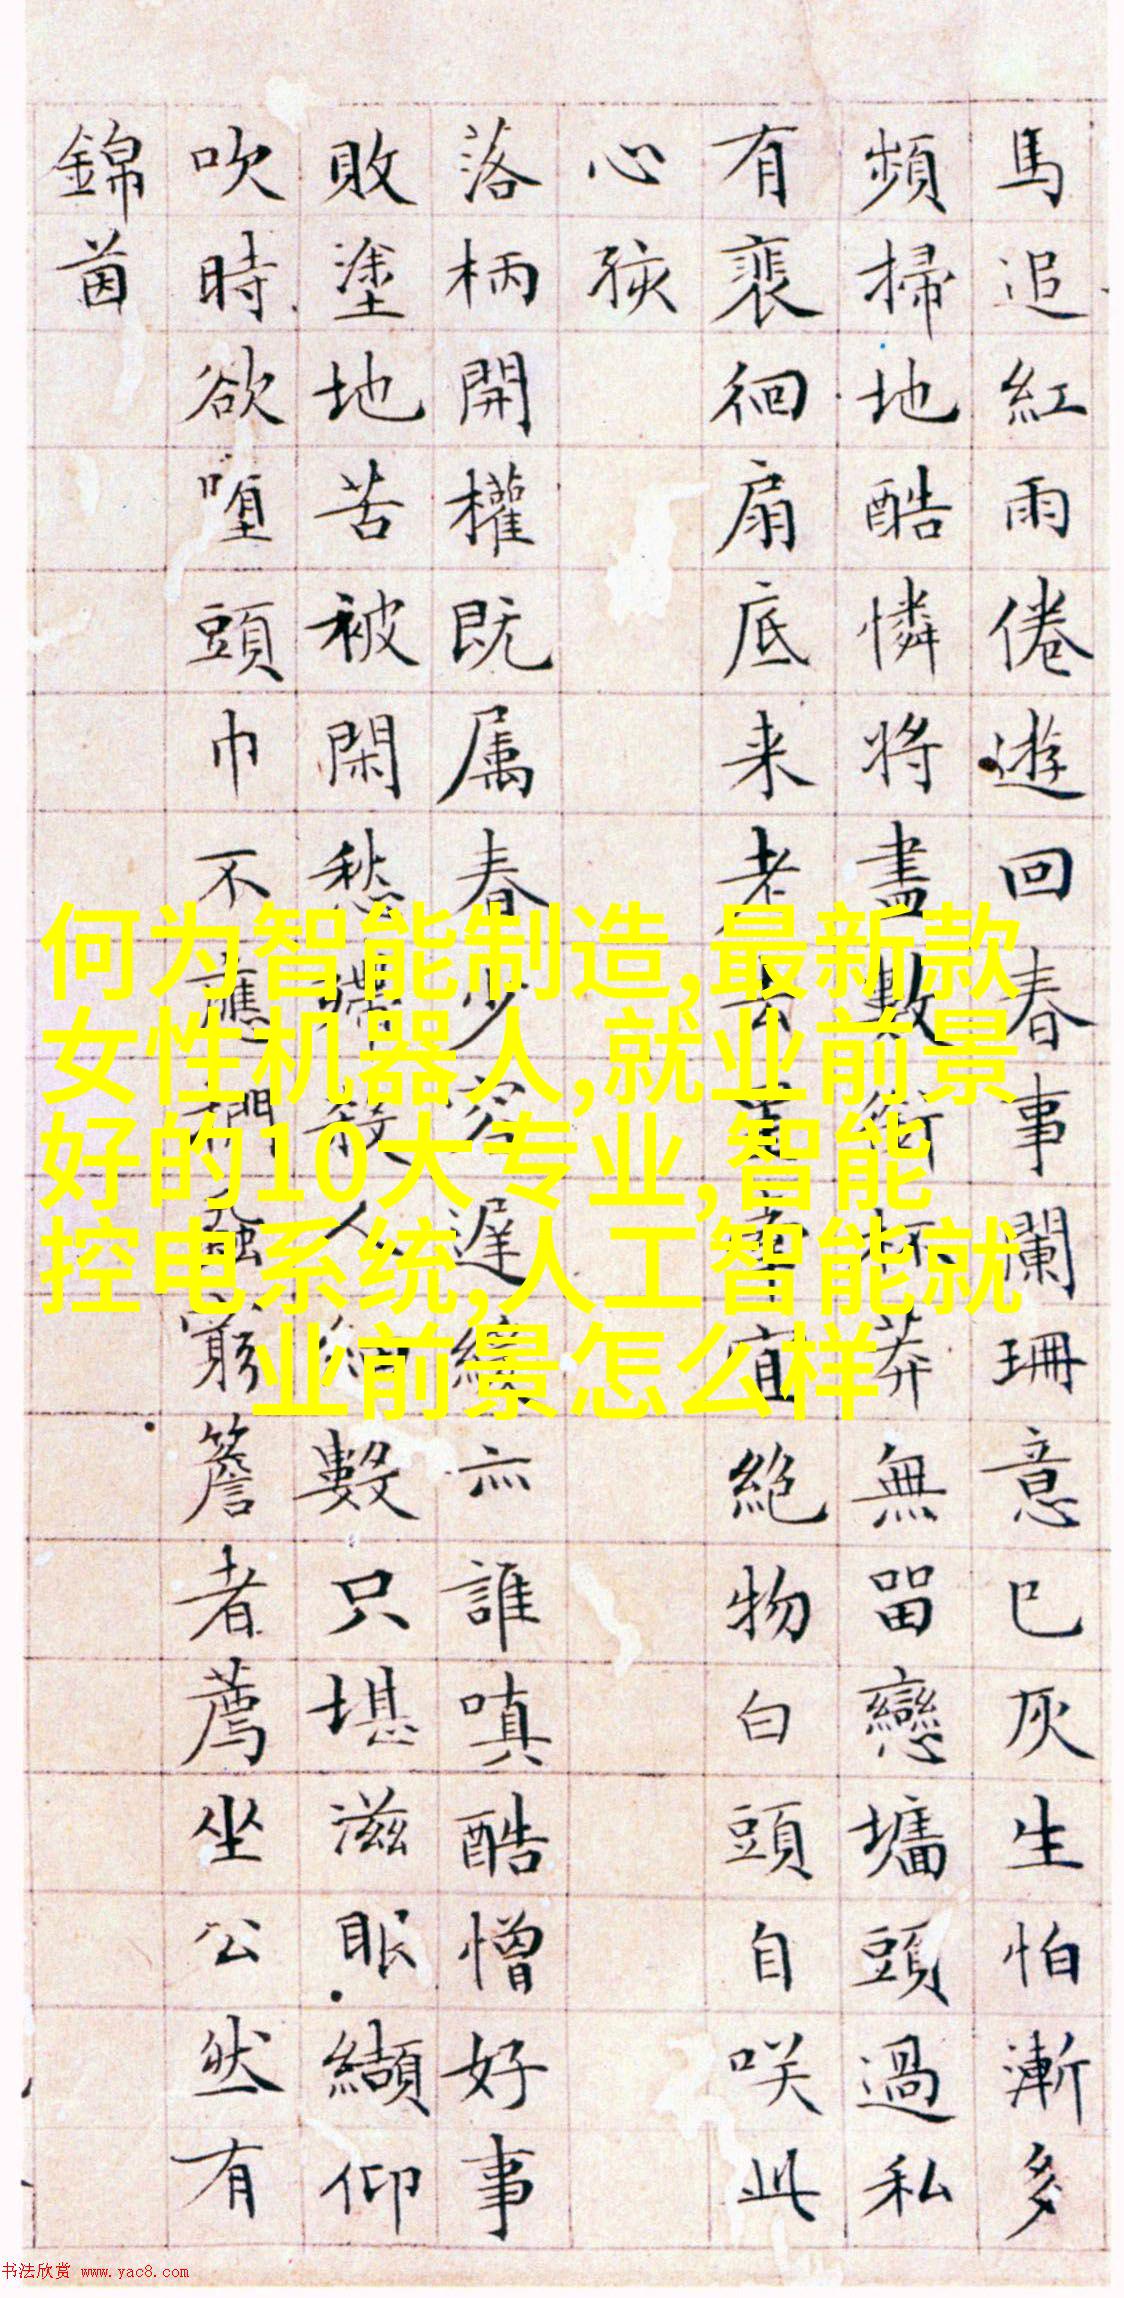 馬追紅雨倦遊回春事闌珊意已灰生怕漸多
頻掃地酷憐將盡數銜杯莽無畱戀墻頭過私
有裴徊扇底来老去宜絕物白頭自咲此
心孩
落柄開權既属春少容遲緩亦誰嗔酷憎好事
敗塗地苦被閑愁殢殺人細數只堪滋眼纈仰
吹時欲堕頭巾不應捫蝨窮簷者薦坐公然有
錦茵
何为智能制造,最新款
女性机器人,就业前景
好的10大专业,智能
控电系统,人工智能就
业前景怎么样
书法欣赏 www.yac8.com